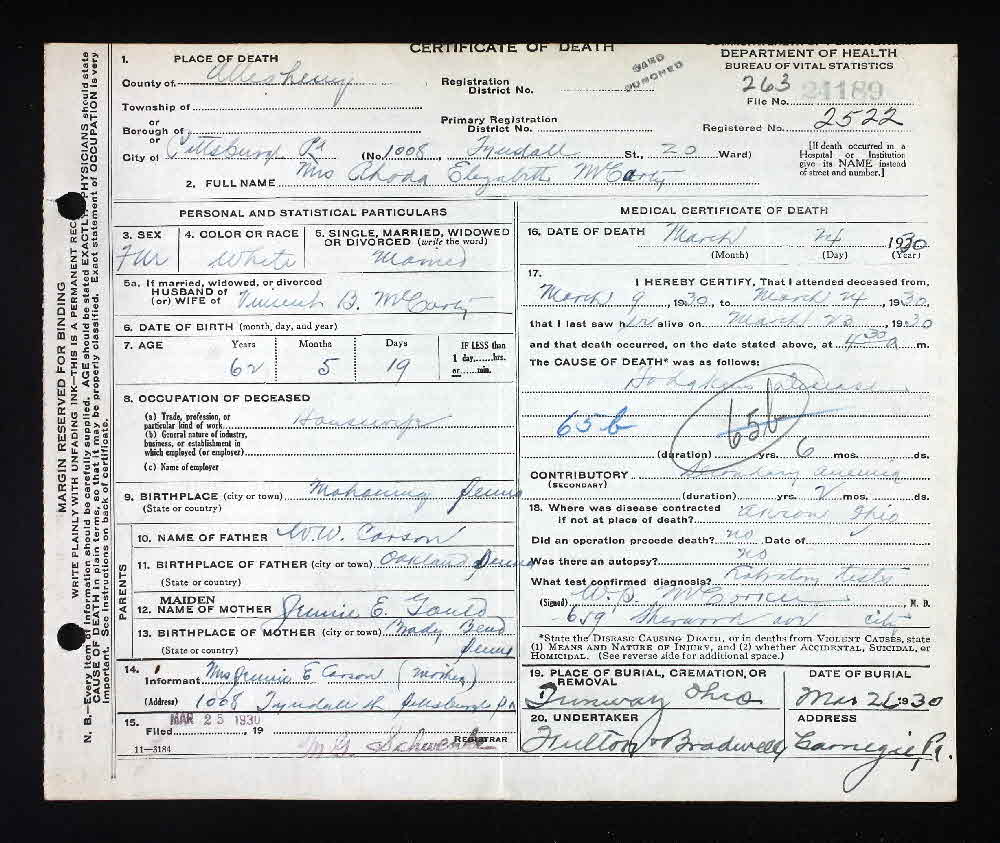 CERTIFICATE OF DEATH
DEPARTMENT OF HEALTH
BUREAU OF VITAL STATISTICS
1. PLACE OF DEATH
County of Allegheny
Registration District No.
CARD PUNCHED
263 24189
File No.
Township of
or
Borough of
or
Primary Registration District No.
Registered No. 2522
City of Pittsburgh Pa (No. 1008, Tyndall St., 20 Ward)
[If death occurred in a Hospital or Institution give its NAME instead of street and number.]
2. FULL NAME Mrs Rhoda Elizabeth McCarty
PERSONAL AND STATISTICAL PARTICULARS
3. SEX
4. COLOR OR RACE White
5. SINGLE, MARRIED, WIDOWED OR DIVORCED (write the word) Married
5a. If married, widowed, or divorced
HUSBAND of
(or) WIFE of Vincent B. McCarty
6. DATE OF BIRTH (month, day, and year)
7. AGE Years 62 Months 5 Days 19 IF LESS than 1 day......hrs. or......min.
8. OCCUPATION OF DECEASED
(a) Trade, profession, or particular kind of work Housewife
(b) General nature of industry, business, or establishment in which employed (or employer)
(c) Name of employer
9. BIRTHPLACE (city or town) Mahoning Penna
(State or country)
PARENTS
10. NAME OF FATHER W.W. Carson
11. BIRTHPLACE OF FATHER (city or town) Oakland Penna
(State or country)
12. MAIDEN NAME OF MOTHER Jennie E. Gould
13. BIRTHPLACE OF MOTHER (city or town) Brady Bend
(State or country) Penna
14. Informant Mrs Jennie E Carson (mother)
(Address) 1008 Tyndall St Pittsburgh Pa
15. MAR 25 1930
Filed, 19
REGISTRAR
11-3184
MEDICAL CERTIFICATE OF DEATH
16. DATE OF DEATH March 24 1930
(Month) (Day) (Year)
17. I HEREBY CERTIFY, That I attended deceased from,
March 9, 1930, to March 24, 1930,
that I last saw her alive on March 23, 1930
and that death occurred, on the date stated above, at 4 30 a m.
The CAUSE OF DEATH* was as follows:
Hodgkins disease
65b
65b
(duration) yrs. 6 mos. ds.
CONTRIBUTORY Secondary anemia
(SECONDARY)
(duration) yrs. 2 mos. ds.
18. Where was disease contracted
if not at place of death? Akron Ohio
Did an operation precede death? no Date of
Was there an autopsy? no
What test confirmed diagnosis? Laboratory tests
(Signed) , M. D.
659 Sherwood ave city
*State the DISEASE CAUSING DEATH, or in deaths from VIOLENT CAUSES, state
(1) MEANS AND NATURE OF INJURY, and (2) whether ACCIDENTAL, SUICIDAL, or
HOMICIDAL. (See reverse side for additional space.)
19. PLACE OF BURIAL, CREMATION, OR REMOVAL
Ohio
DATE OF BURIAL
Mar 26 1930
20. UNDERTAKER
Fulton Bradwell
ADDRESS
Carnegie, Pa.
MARGIN RESERVED FOR BINDING
WRITE PLAINLY WITH UNFADING INK—THIS IS A PERMANENT REC
N. B.—Every item of information should be carefully supplied. AGE should be stated EXACTLY. PHYSICIANS should state
CAUSE OF DEATH in plain terms, so that it may be properly classified. Exact statement of OCCUPATION is very
important. See instructions on back of certificate.